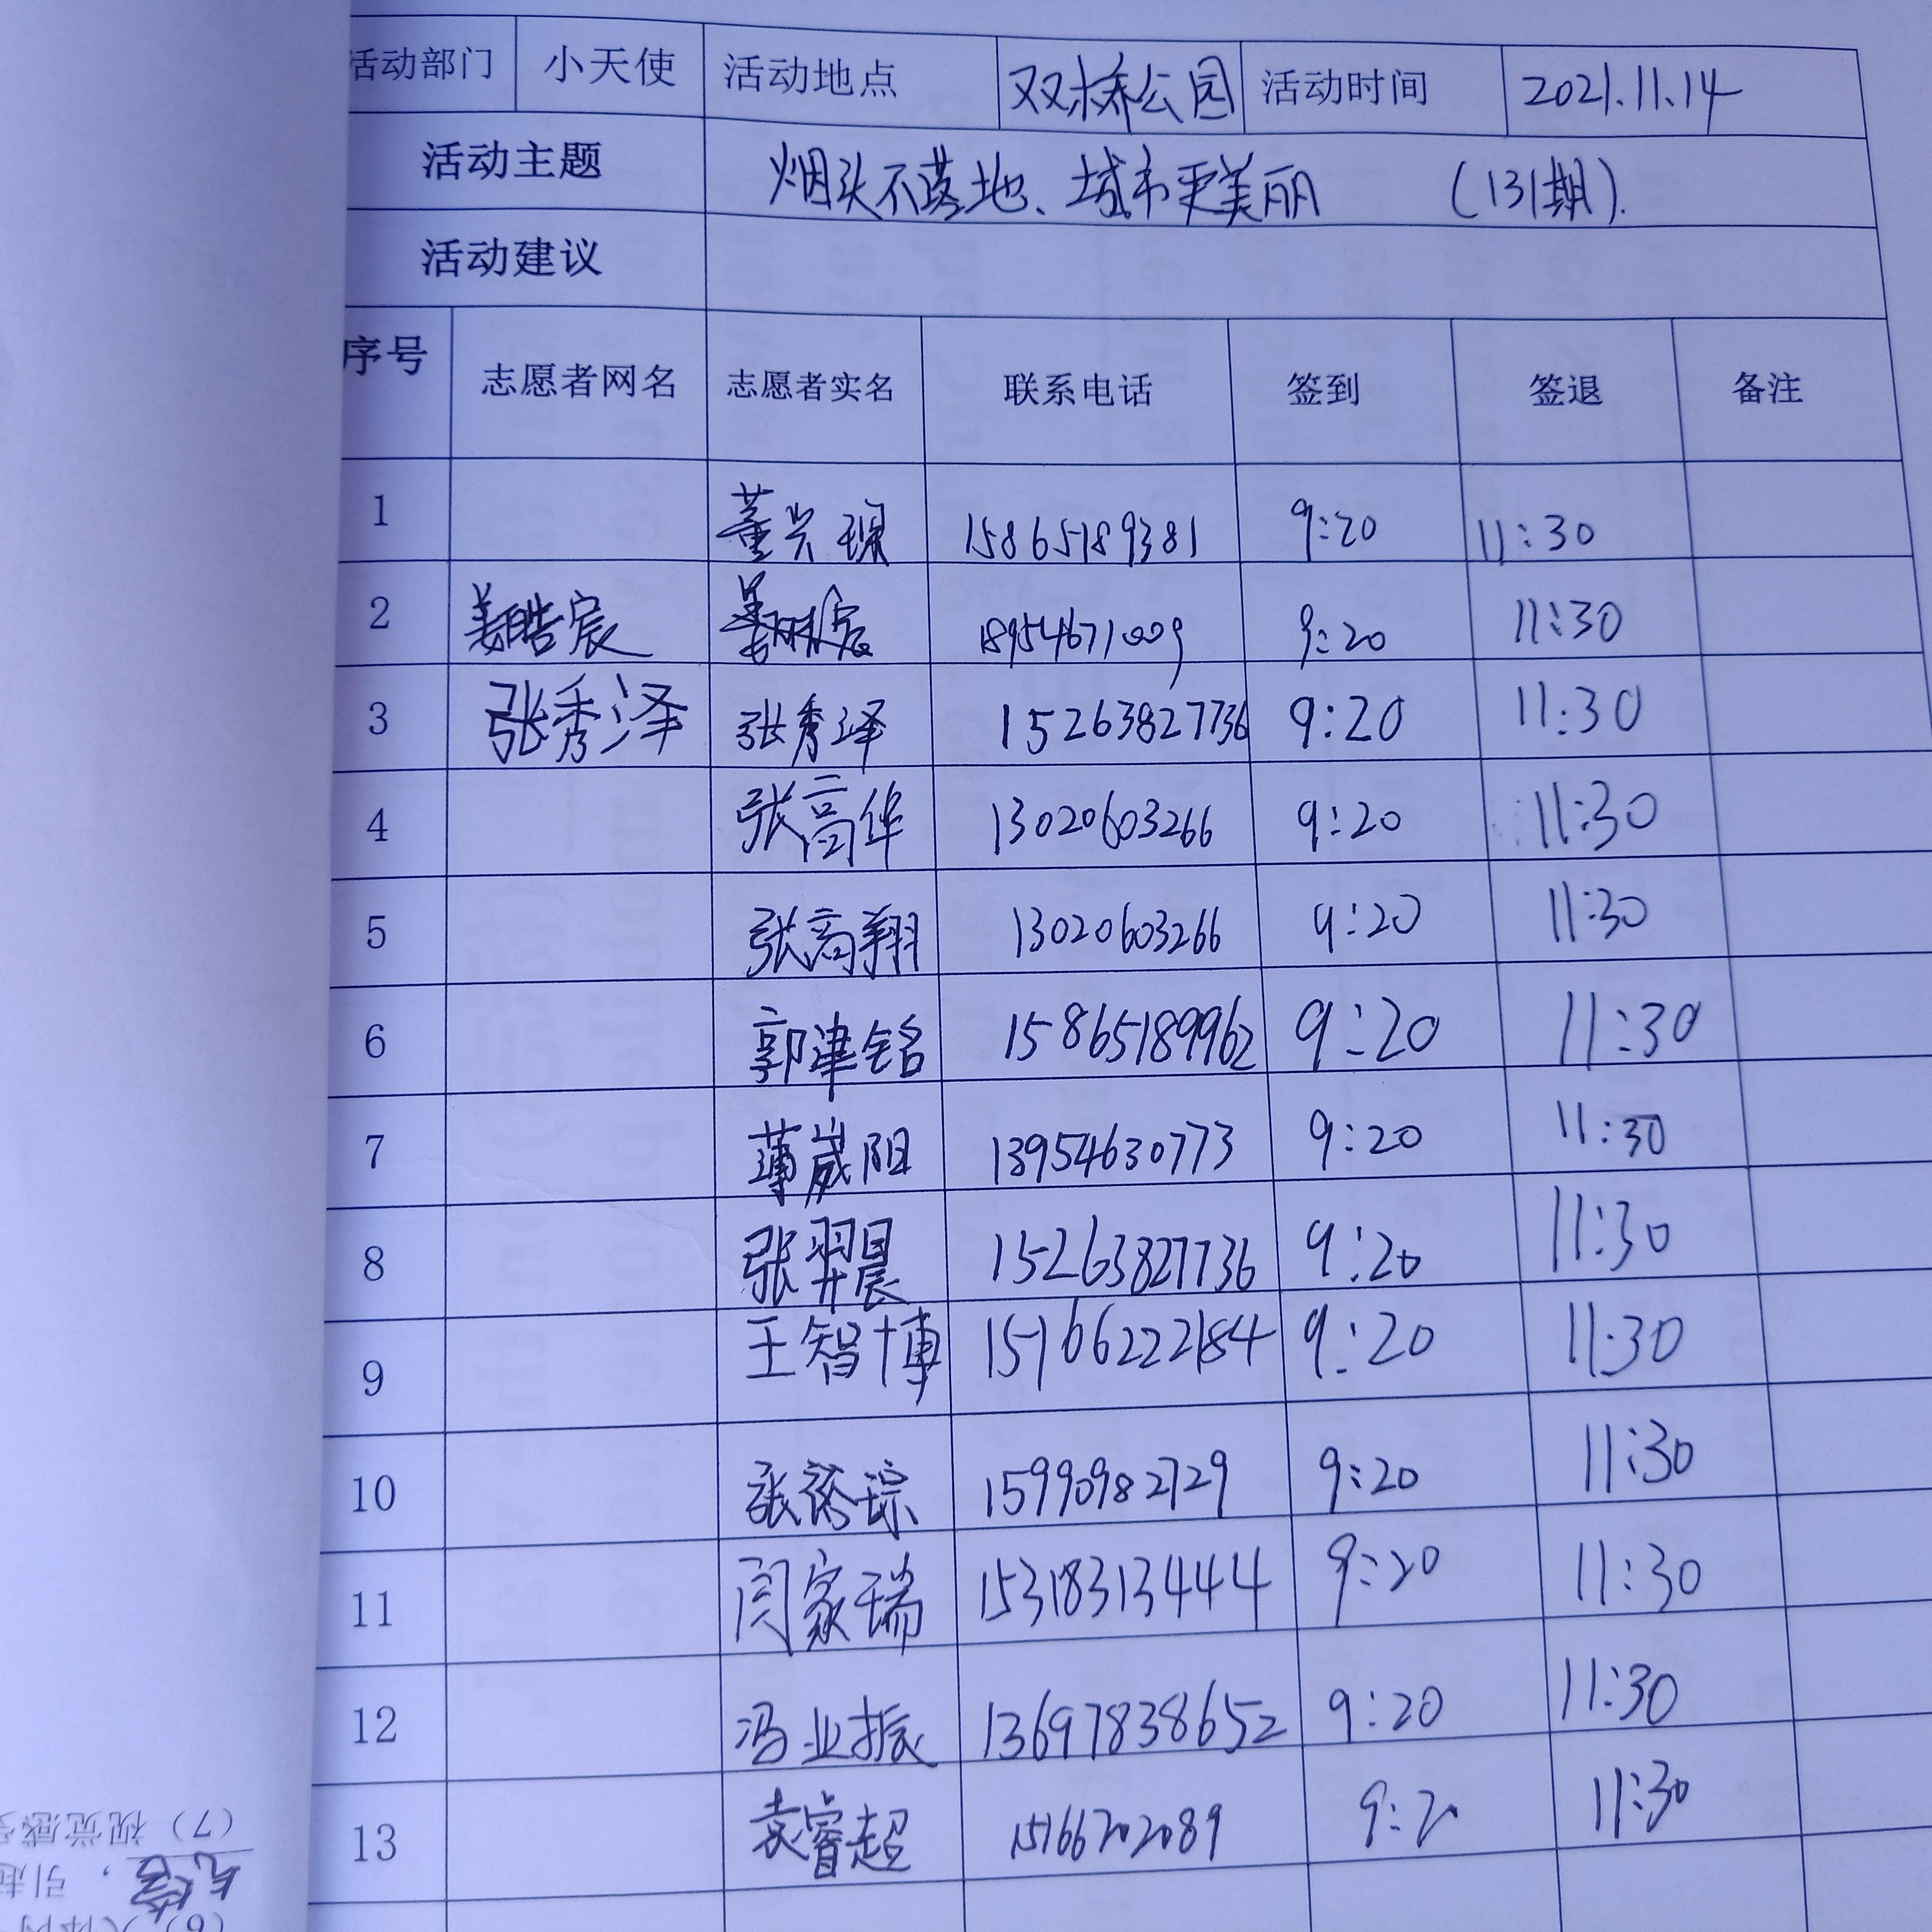 活动部门 小天使 活动地点 双桥公园 活动时间 2021.11.14
活动主题 烟头不落地、城市更美丽 (131期).
活动建议
序号 志愿者网名 志愿者实名 联系电话 签到 签退 备注
1 董兴 15865189381 9:20 11:30
2 姜皓宸 18954671009 9:20 11:30
3 张秀泽 张秀泽 15263827736 9:20 11:30
4 张高华 13020603266 9:20 11:30
5 张高翔 13020603266 9:20 11:30
6 郭津铭 15865189962 9:20 11:30
7 薄崴阳 13954630773 9:20 11:30
8 张羿晨 15263827736 9:20 11:30
9 王智博 15166222184 9:20 11:30
10 张裕琮 15990982729 9:20 11:30
11 闫家瑞 15318313444 9:20 11:30
12 冯业振 13697838652 9:20 11:30
13 袁睿超 15166702089 9:20 11:30
(7) 视觉感
，引起